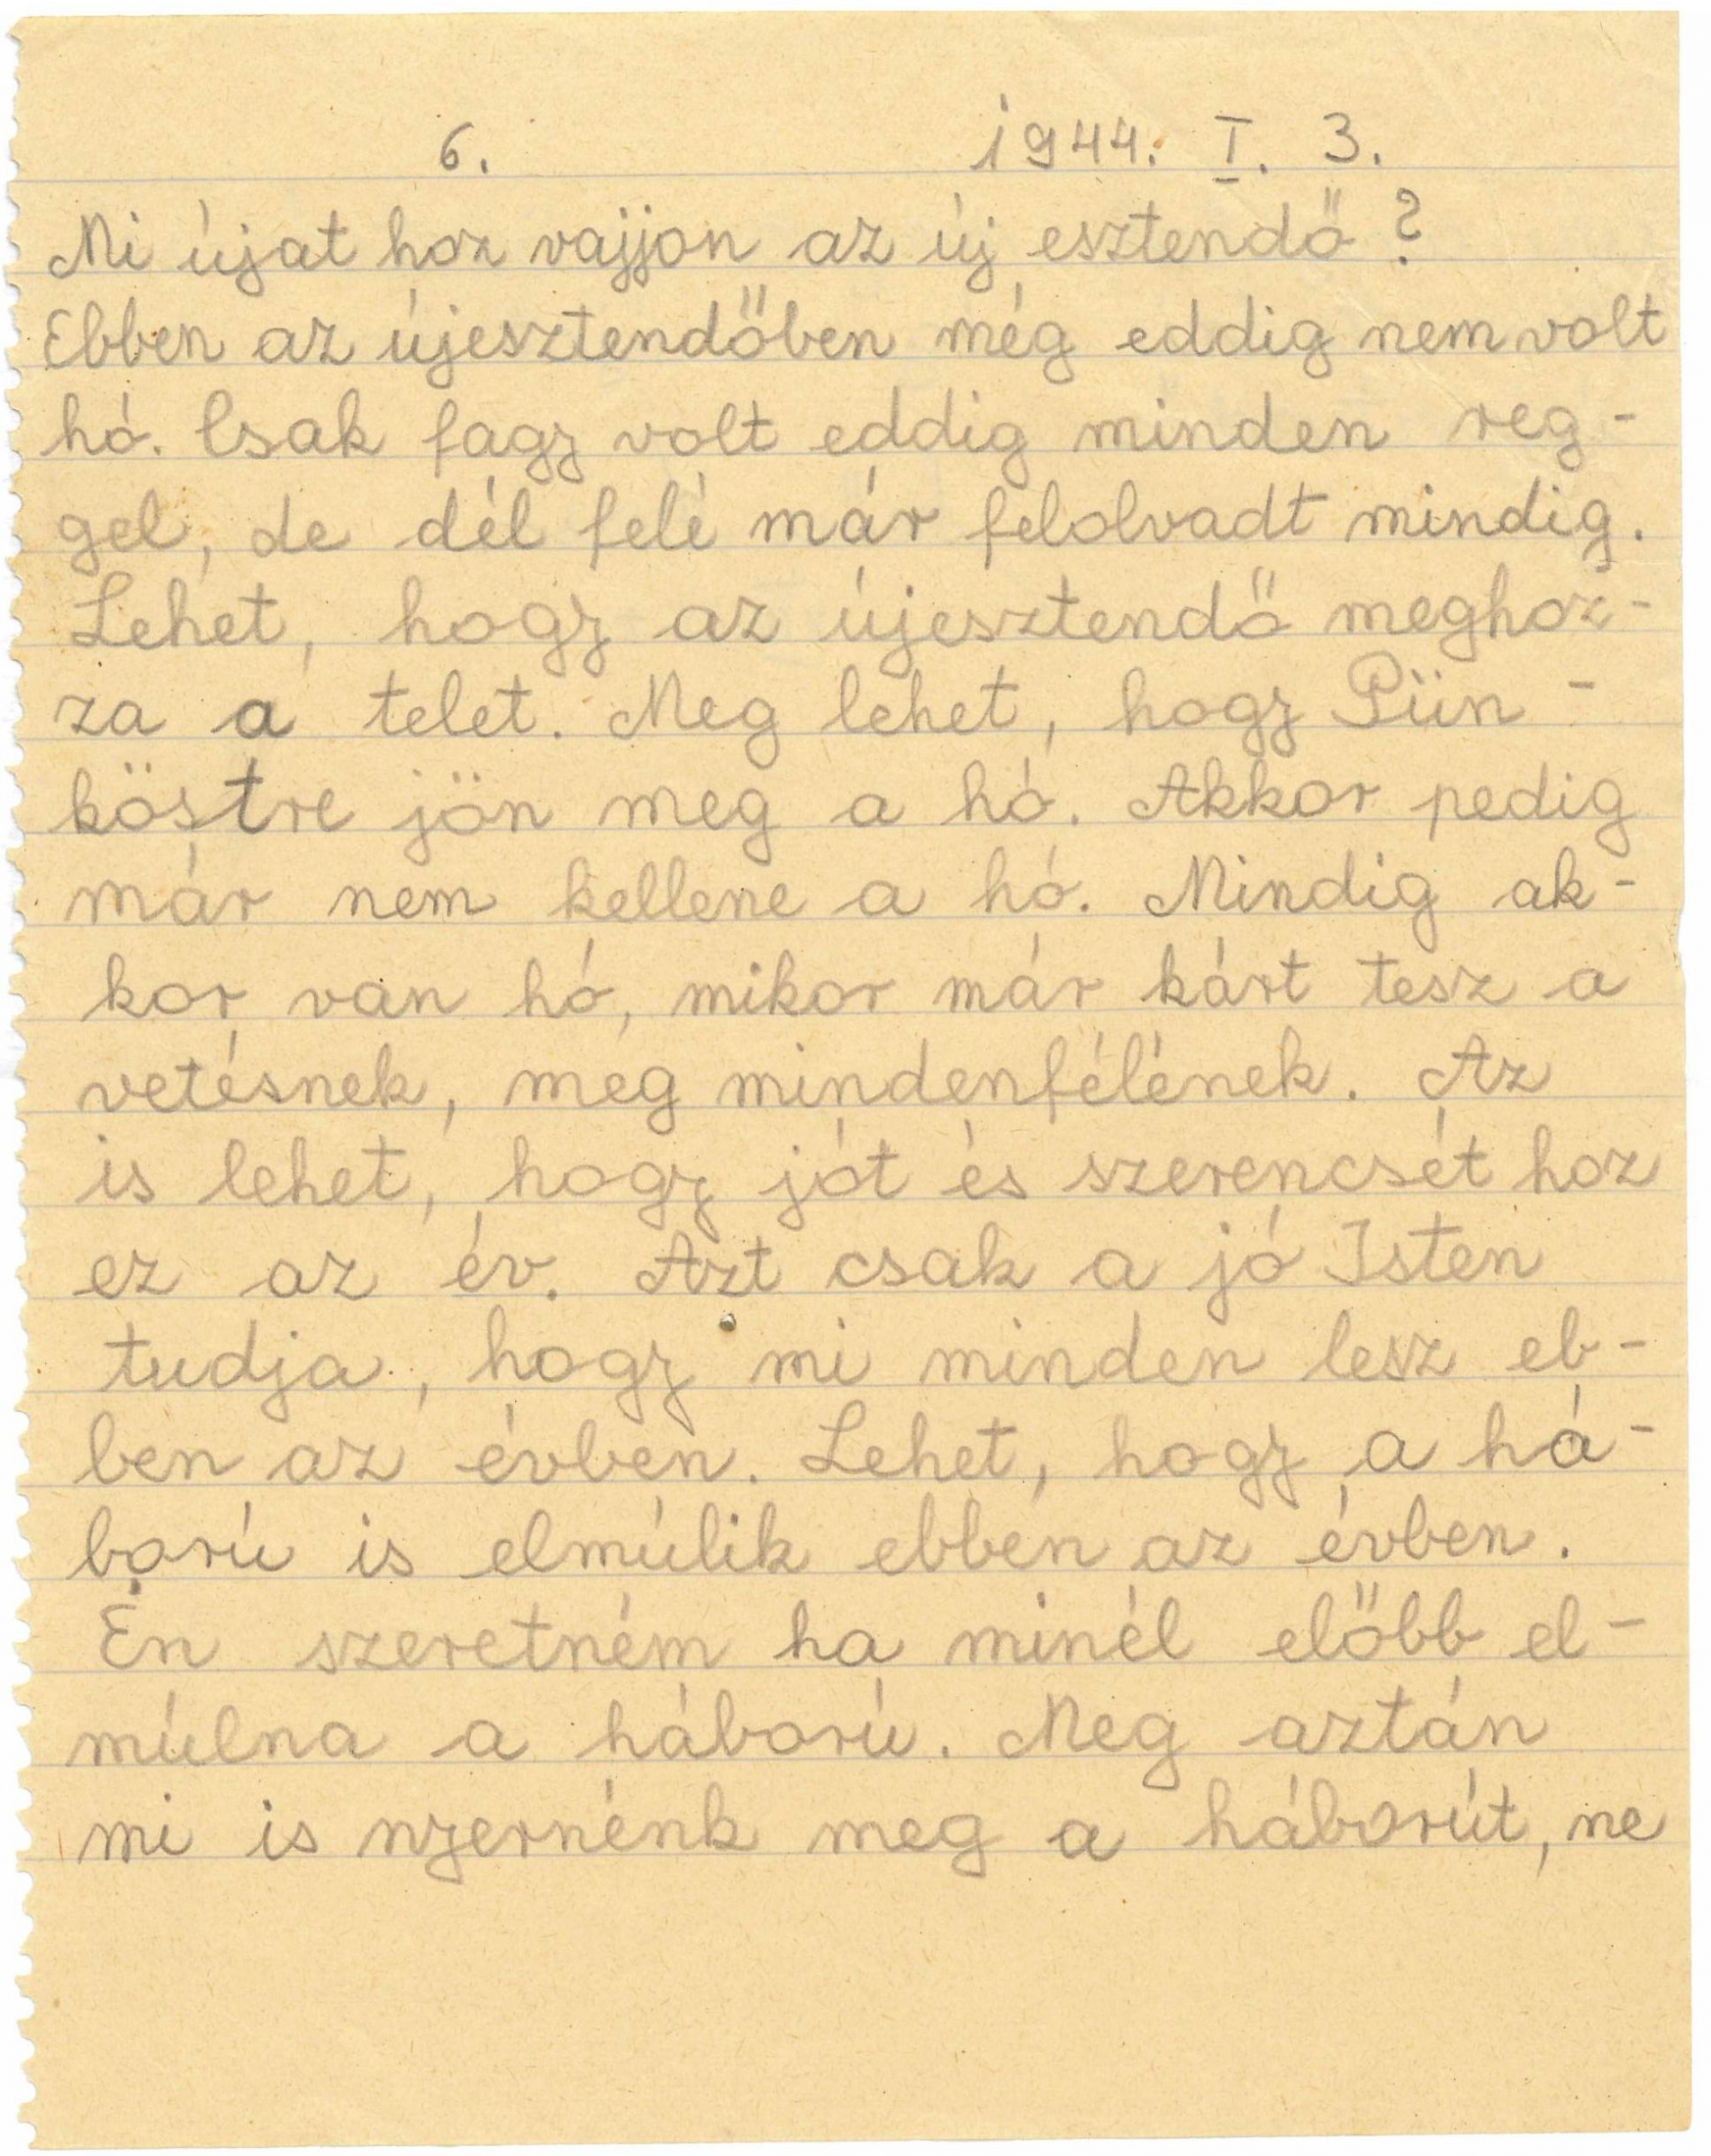 6. 1944. I. 3.
Mi újat hoz vajjon az új esztendő?
Ebben az újesztendőben még eddig nem volt
hó. Csak fagy volt eddig minden reg-
gel, de dél felé már felolvadt mindig.
Lehet, hogy az újesztendő meghoz-
za a telet. Meg lehet, hogy Pün-
köstre jön meg a hó. Akkor pedig
már nem kellene a hó. Mindig ak-
kor van hó, mikor már kárt tesz a
vetésnek, meg mindenfélének. Az
is lehet, hogy jót és szerencsét hoz
ez az év. Azt csak a jó Isten
tudja, hogy mi minden lesz eb-
ben az évben. Lehet, hogy a há-
ború is elmúlik ebben az évben.
Én szeretném ha minél előbb el-
múlna a háború. Meg aztán
mi is nyernénk meg a háborút, ne